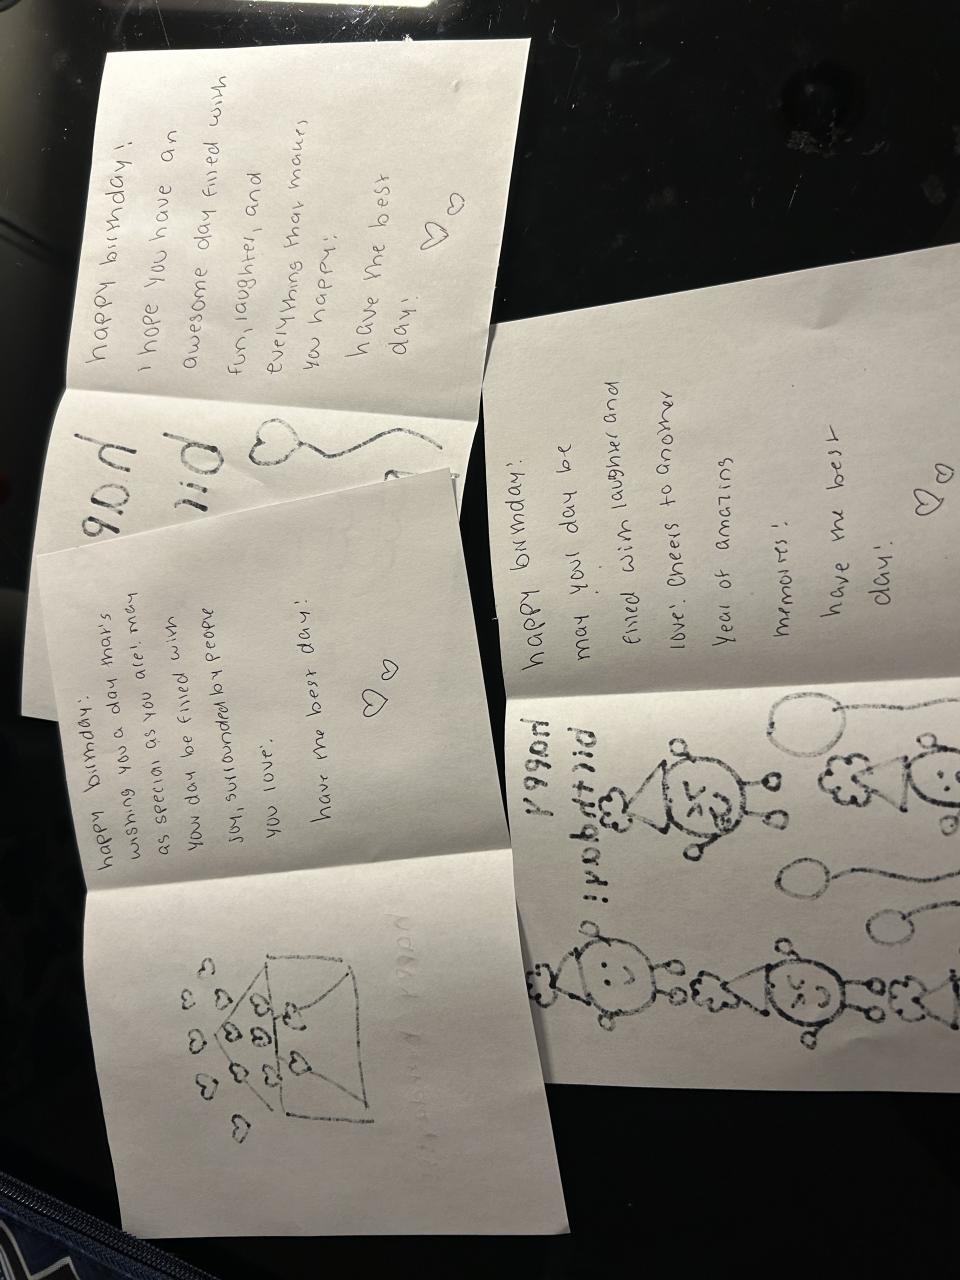 happy birthday!
I hope you have an
awesome day filled with
fun, laughter, and
everything that makes
you happy!
have the best
day!
happy birthday!
wishing you a day that's
as special as you are! may
your day be filled with
joy, surrounded by people
you love!
have the best day!
happy birthday!
may your day be
filled with laughter and
love! Cheers to another
year of amazing
memories!
have the best
day!